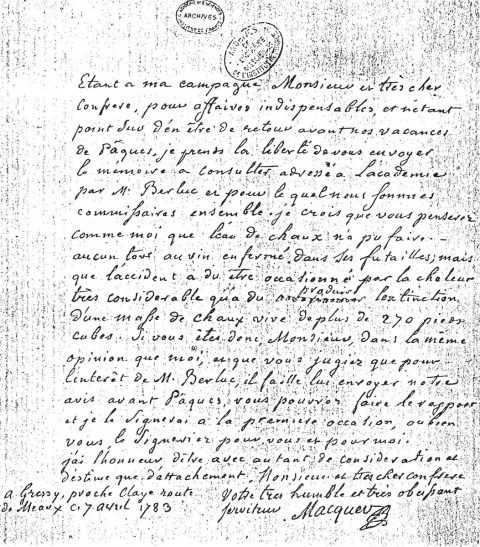 ARCHIVES
ARCHIVES
DE L'INSTITUT
Etant a ma campagne Monsieur et tres cher
Confrere, pour affaires indispensables, et n'etant
point sur d'en être de retour avant nos vacances
de Pâques, je prends la liberté de vous envoyer
le memoire a consulter adressé a l'academie
par M. Berluc et pour le quel nous sommes
commissaires ensemble. je crois que vous penserez
comme moi que l'eau de chaux n'a pu faire
aucun tort au vin enfermé dans ses futailles; mais
que l'accident a du être occasionné par la chaleur
tres considerable qu'a du produire l'extinction
d'une masse de chaux vive de plus de 270 pieds
cubes. Si vous êtes donc, Monsieur, dans la même
opinion que moi, et que vous jugiez que pour
l'interêt de M. Berluc, il faille lui envoyer notre
avis avant Pâques, vous pouvez faire le rapport
et je le signerai a la premiere occasion, ou bien
vous le signeriez pour vous et pour moi.
j'ai l'honneur d'être avec autant de consideration et
d'estime que d'attachement, Monsieur et tres cher confrere
a Gressy, proche Claye route
de Meaux ce 7 avril 1783
Votre tres humble et tres obeissant
serviteur Macquer